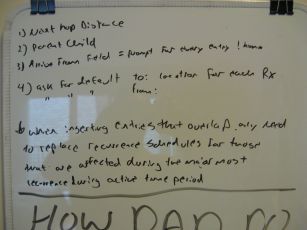 1) Next Hop Distance
2) Parent Child
3) Arrive From Field = prompt for every entry ! home
4) ask for default to: location for each Rx
" " " from:
when inserting entries that overlap, only need
to replace recurrence schedules for those
that are affected during the major most
recurrence during active time period
HOW DAD DO